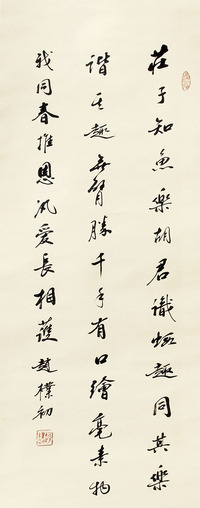 莊子知魚樂胡君識蝦趣同其樂
諧其趣無臂勝千手有口繪毫素物
我同春推恩汎愛長相蘸 趙樸初